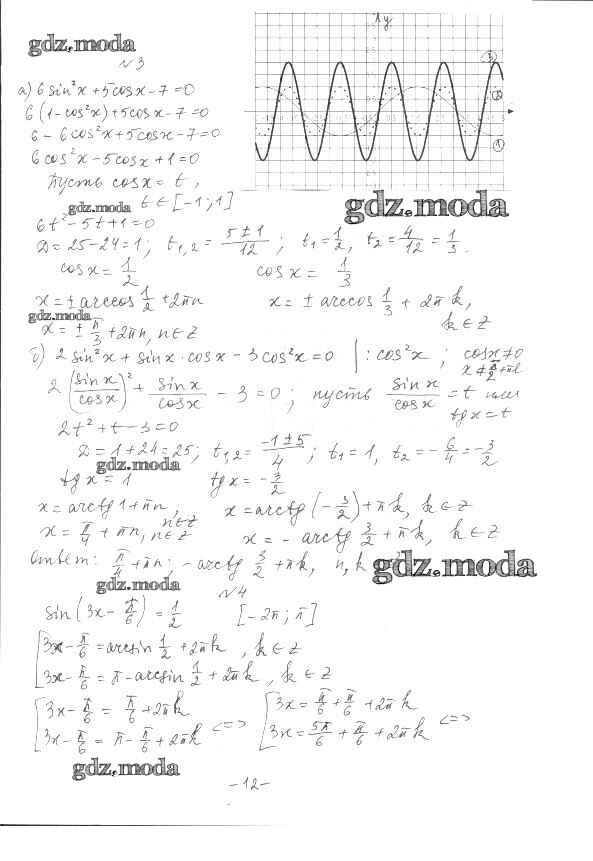 gdz.moda
у
N 3
а) 6 sin²x + 5cosx - 7 = 0
③
6 (1 - cos²x) + 5cosx - 7 = 0
②
6 - 6cos²x + 5cosx - 7 = 0
①
6cos²x - 5cosx + 1 = 0
Пусть cosx = t,
gdz.moda t ∈ [-1; 1]
gdz.moda
6t² - 5t + 1 = 0
D = 25 - 24 = 1; t₁,₂ = (5 ± 1)/12; t₁ = 1/2, t₂ = 4/12 = 1/3.
cosx = 1/2 cosx = 1/3
x = ± arccos 1/2 + 2πn x = ± arccos 1/3 + 2πk,
gdz.moda
x = ± π/3 + 2πn, n ∈ Z k ∈ Z
б) 2 sin²x + sinx · cosx - 3cos²x = 0 | : cos²x; cosx ≠ 0
x ≠ π/2 + πl
2 (sinx/cosx)² + sinx/cosx - 3 = 0; пусть sinx/cosx = t
tgx = t
2t² + t - 3 = 0
D = 1 + 24 = 25; t₁,₂ = (-1 ± 5)/4; t₁ = 1, t₂ = - 6/4 = - 3/2
gdz.moda
tgx = 1 tgx = - 3/2
x = arctg1 + πn, n ∈ Z x = arctg (- 3/2) + πk, k ∈ Z
x = π/4 + πn, n ∈ Z x = - arctg 3/2 + πk, k ∈ Z
Ответ: π/4 + πn; - arctg 3/2 + πk, n, k
gdz.moda
gdz.moda
N 4
sin (3x - π/6) = 1/2 [-2π; π]
[ 3x - π/6 = arcsin 1/2 + 2πk, k ∈ Z
3x - π/6 = π - arcsin 1/2 + 2πk, k ∈ Z
[ 3x - π/6 = π/6 + 2πk [ 3x = π/6 + π/6 + 2πk
3x - π/6 = π - π/6 + 2πk <=> 3x = 5π/6 + π/6 + 2πk <=>
gdz.moda
-12-